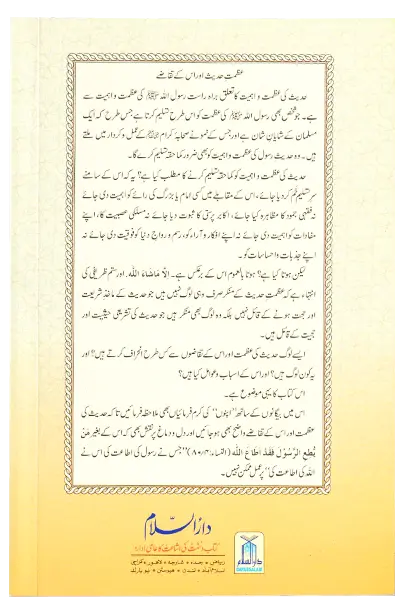 عظمتِ حدیث اور اس کے تقاضے
حدیث کی عظمت و اہمیت کا تعلق براہ راست رسول اللہ ﷺ کی عظمت و اہمیت سے
ہے۔ جو شخص بھی رسول اللہ ﷺ کی عظمت کو اس طرح تسلیم کرتا ہے جس طرح کہ ایک
مسلمان کے شایانِ شان ہے اور جس کے نمونے صحابۂ کرام ﷢ کے عمل و کردار میں ملتے
ہیں۔ وہ حدیثِ رسول کی عظمت و اہمیت کو بھی ضرور کما حقہ تسلیم کرے گا۔
حدیث کی عظمت و اہمیت کو کما حقہ تسلیم کرنے کا مطلب کیا ہے؟ یہ کہ اس کے سامنے
سرِ تسلیم خم کر دیا جائے، اس کے مقابلے میں کسی امام یا بزرگ کی رائے کو اہمیت دی جائے
نہ فقہی جمود کا مظاہرہ کیا جائے، اکابر پرستی کا ثبوت دیا جائے نہ مسلکی عصبیت کا، اپنے
مفادات کو اہمیت دی جائے نہ اپنے افکار و آراء کو، رسم و رواجِ دنیا کو فوقیت دی جائے نہ
اپنے جذبات و احساسات کو۔
لیکن ہوتا کیا ہے؟ ہوتا بالعموم اس کے برعکس ہے۔ اِلَّا مَاشَاءَ اللّٰہ. اور ستم ظریفی کی
انتہاء ہے کہ عظمتِ حدیث کے منکر صرف وہی لوگ نہیں ہیں جو حدیث کے ماخذِ شریعت
اور حجت ہونے کے قائل نہیں بلکہ وہ لوگ بھی منکر ہیں جو حدیث کی تشریعی حیثیت اور
حجیت کے قائل ہیں۔
ایسے لوگ حدیث کی عظمت اور اس کے تقاضوں سے کس طرح انحراف کرتے ہیں؟ اور
یہ کون لوگ ہیں؟ اور اس کے اسباب و عوامل کیا ہیں؟
اس کتاب کا یہی موضوع ہے۔
اس میں بیگانوں کے ساتھ ”اپنوں“ کی کرم فرمائیاں بھی ملاحظہ فرمائیں تاکہ حدیث کی
عظمت اور اس کے تقاضے واضح بھی ہو جائیں اور دل و دماغ پر نقش بھی کہ اس کے بغیر مَنْ
یُطِعِ الرَّسُوْلَ فَقَدْ اَطَاعَ اللّٰہَ (النساء:۴/۸۰) ”جس نے رسول کی اطاعت کی اس نے
اللہ کی اطاعت کی“ پر عمل ممکن نہیں۔
دارُالسلام
کتاب و سنّت کی اشاعت کا عالمی ادارہ
ریاض • جدہ • شارجہ • لاہور • کراچی
اسلام آباد • لندن • ہیوسٹن • نیو یارک
دارالسلام
DARUSSALAM